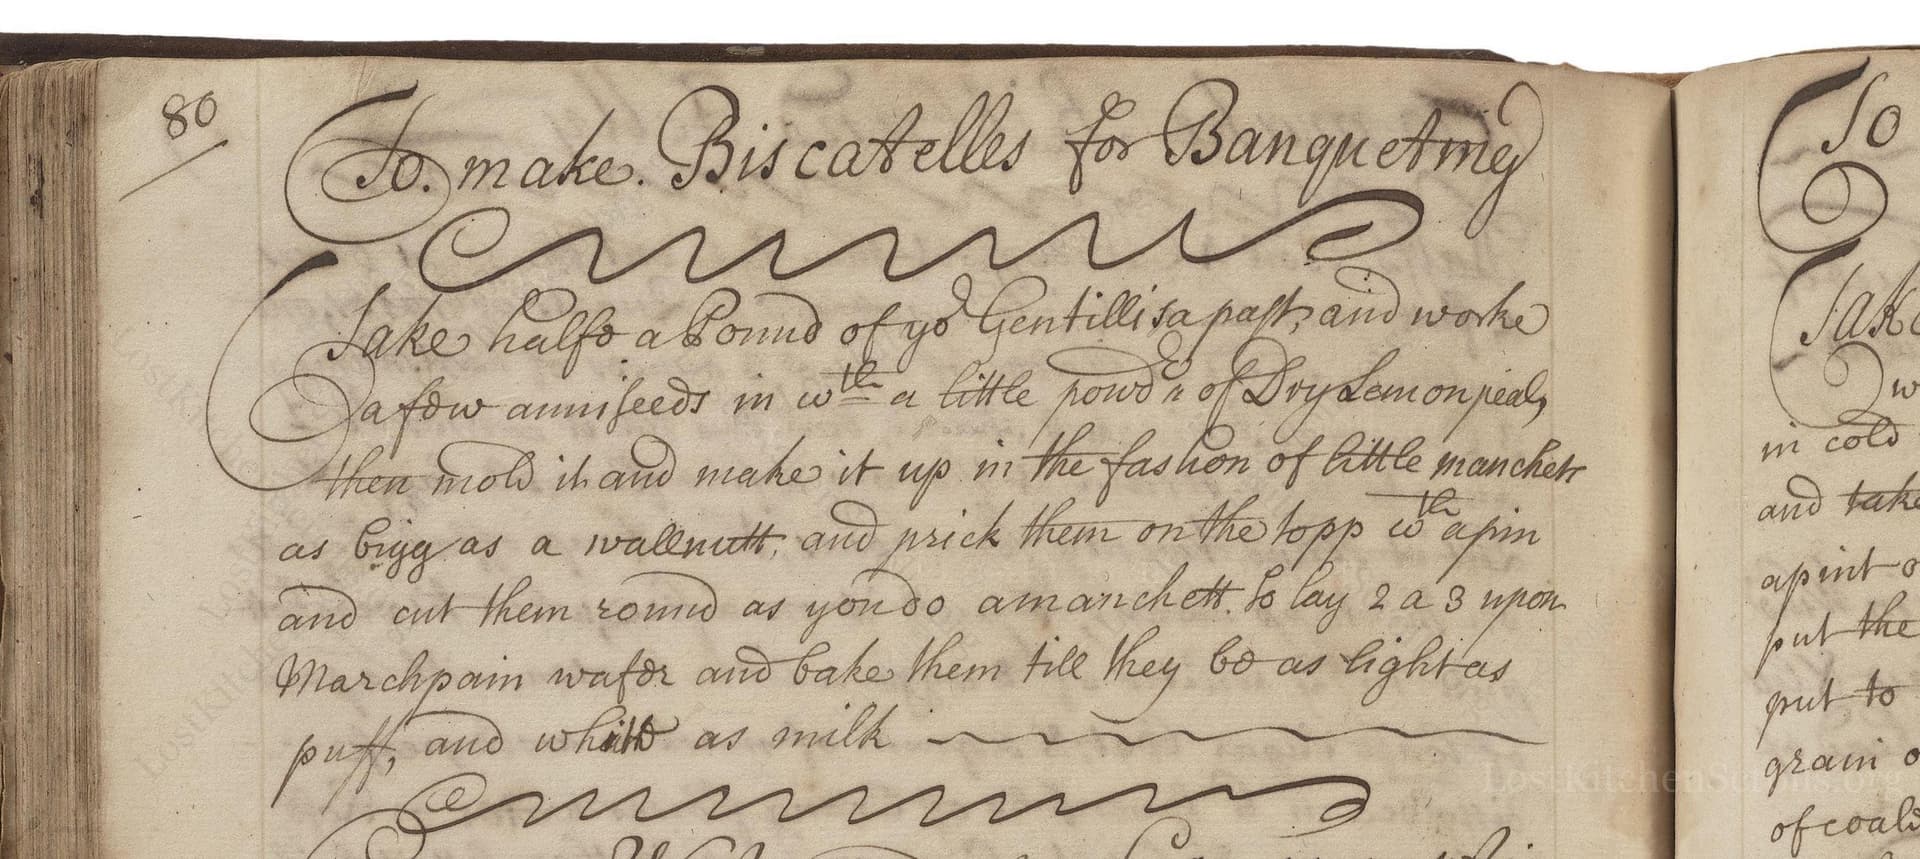 80
To. make. Biscatelles for Banqueting
Take halfe a Pound of ye Gentillisa past, and worke
a few anniseeds in wth a little powdr of Dry Lemon peal,
then mold it and make it up in the fashion of little manchet
as bigg as a wallnutt, and prick them on the topp wth a pin
and cut them round as you do a manchett. so lay 2 a 3 upon
Marchpain wafer and bake them till they be as light as
puff, and white as milk
To
Take
w
in cold
and take
a pint o
put the
put to
grain o
of coald
LostKitchenScrolls.org